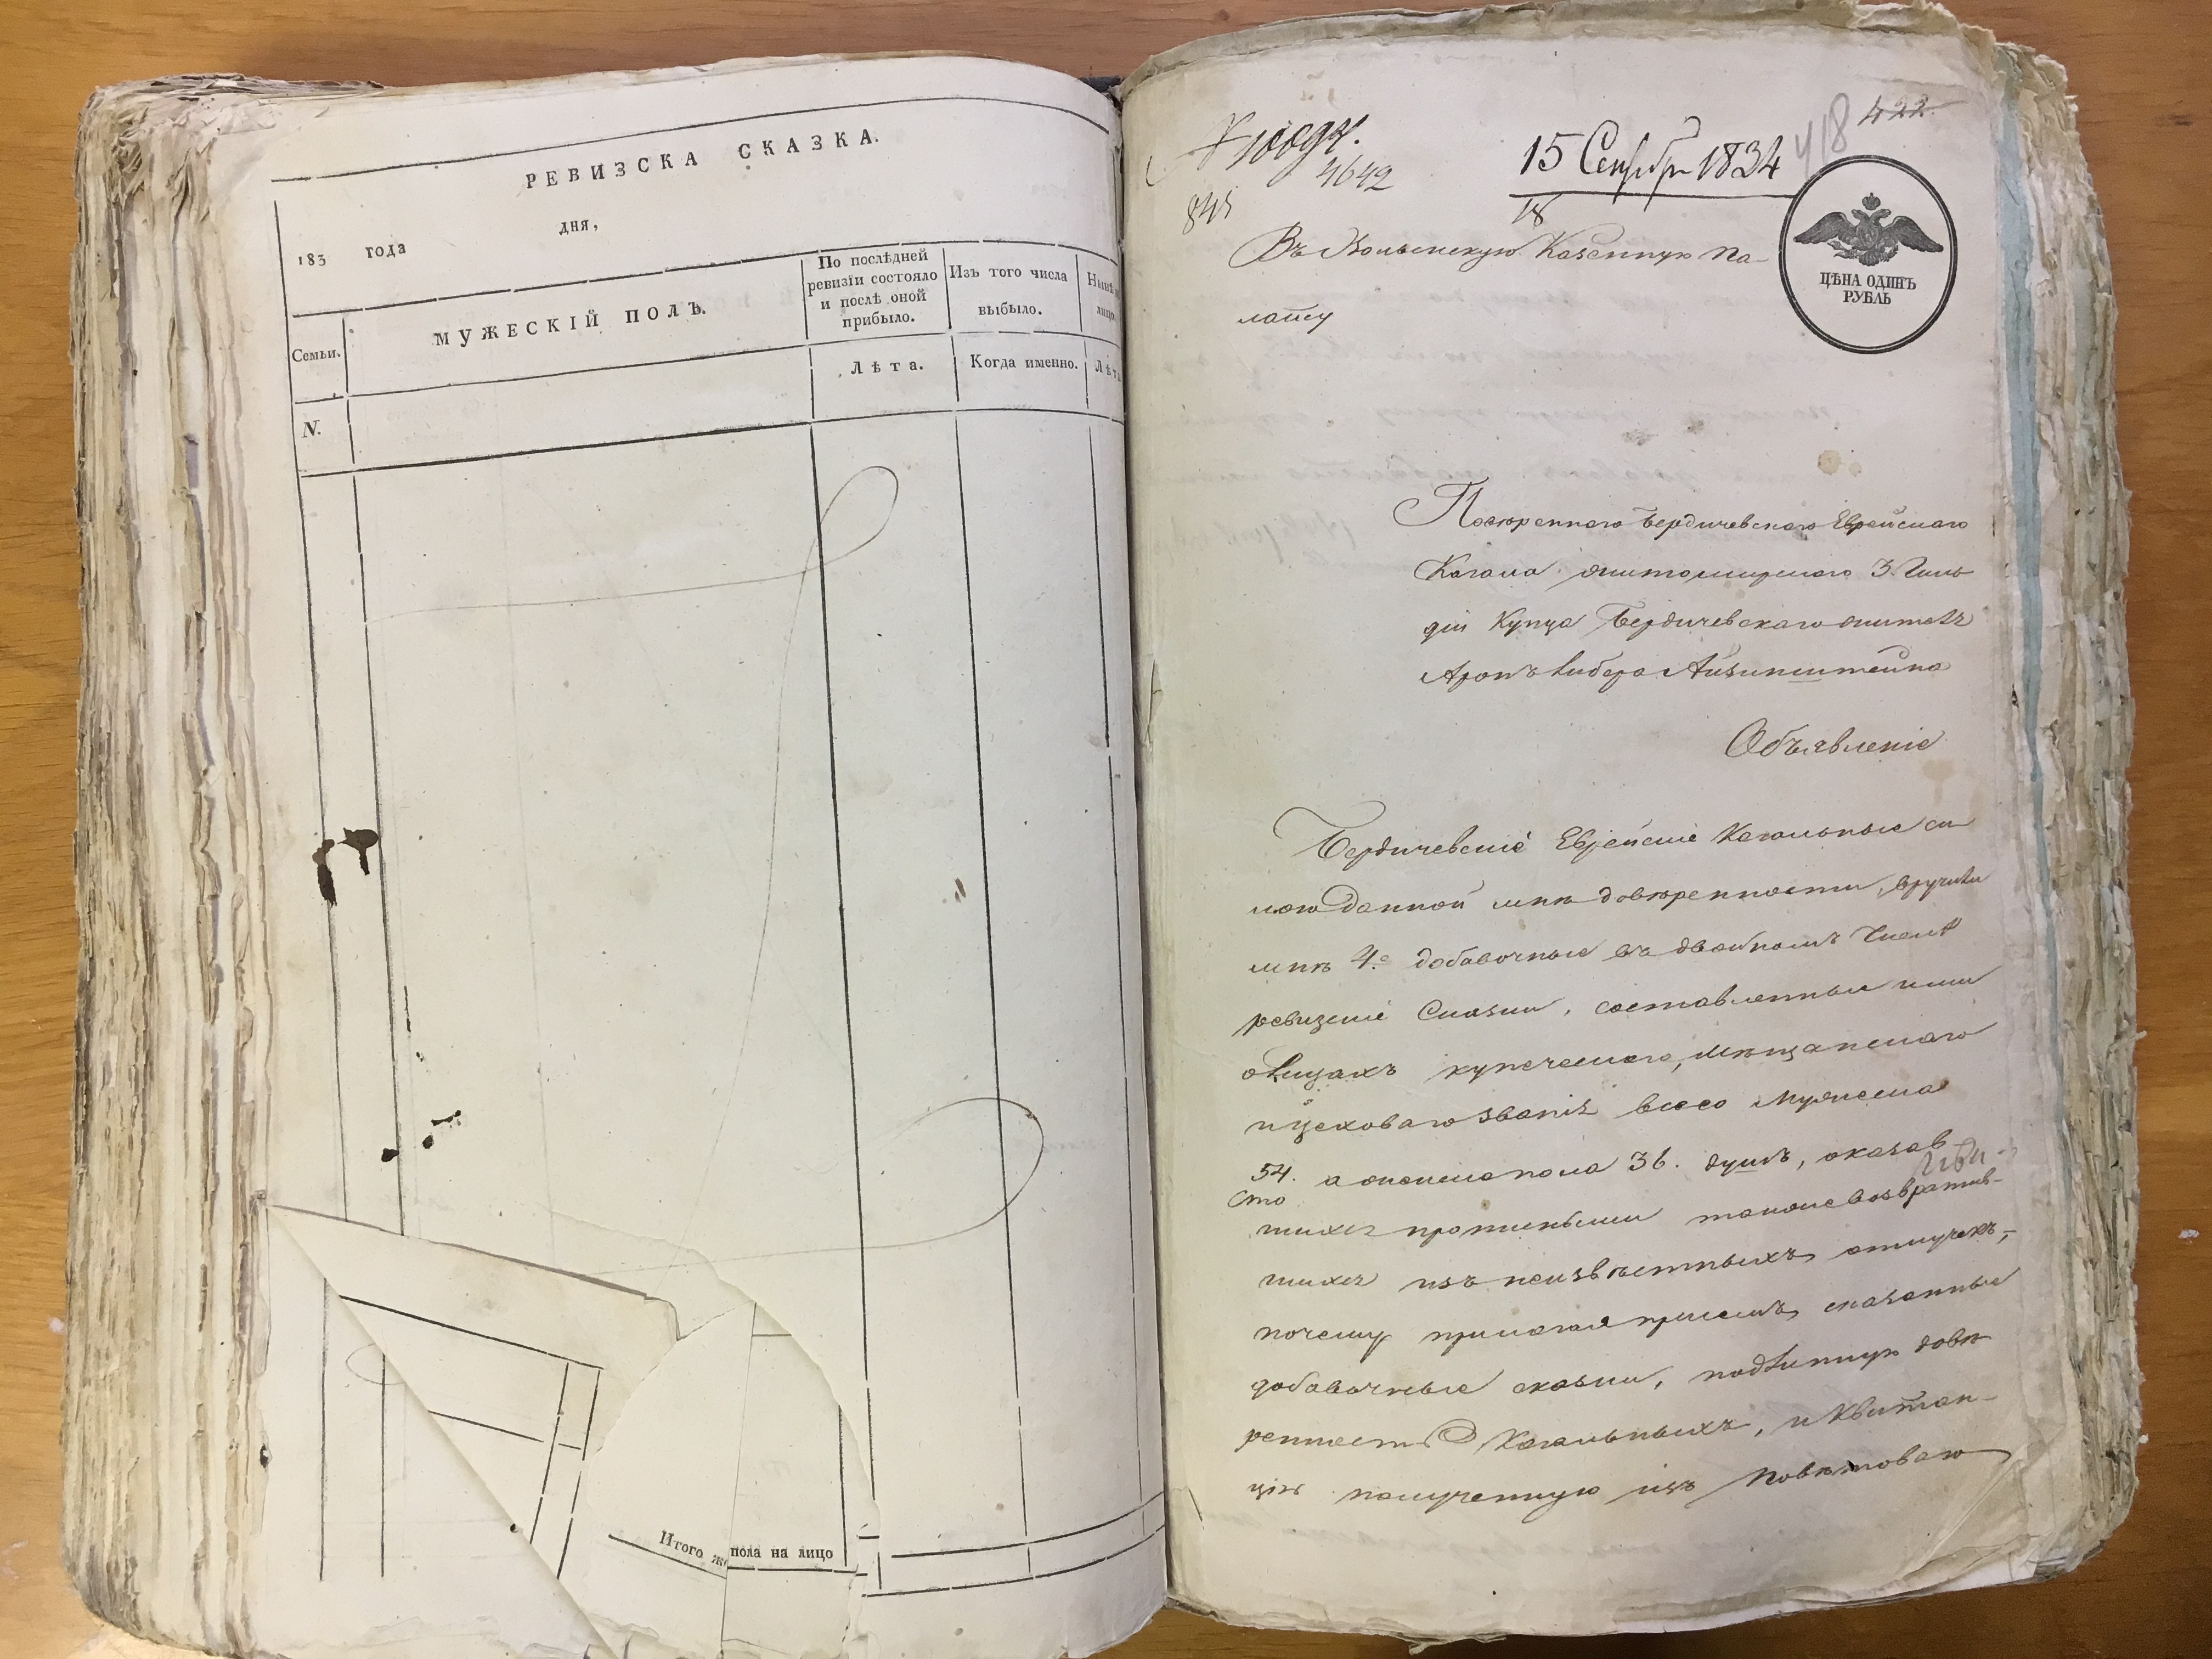 РЕВИЗСКА СКАЗКА.
183 года дня,
Семьи.
МУЖЕСКІЙ ПОЛЪ.
По послѣдней
ревизіи состояло
и послѣ оной
прибыло.
Изъ того числа
выбыло.
Лѣта.
Когда именно.
N.
Итого
пола на лицо
422
418
4642
845
15 Сентября 1834
18
ЦѢНА ОДИНЪ
РУБЛЬ
Въ Волынскую Казенную Па-
лату
Повѣреннаго Бердичевскаго Еврейскаго
Кагала житомирскаго 3. Гиль
діи Купца Бердичевскаго жителя
Аронъ Либера Айзинштейна
Объявленіе
Бердичевскіе Еврейскіе Кагальные си
лою данной мнѣ довѣренности, вручили
мнѣ 4е добавочные въ двойномъ числѣ
ревизскіе Сказки, составленные ими
о лицахъ купеческаго, мѣщанскаго
и цеховаго званія всего мужеска
54. а женска пола 36. душъ, оказав
шихся прописными также возвратив-
шихся изъ неизвѣстныхъ отлучекъ,
почему прилагая присемъ сказанные
добавочные сказки, подлинную довѣ
ренность Кагальныхъ, и Квитан-
цію полученную изъ Повѣтоваго